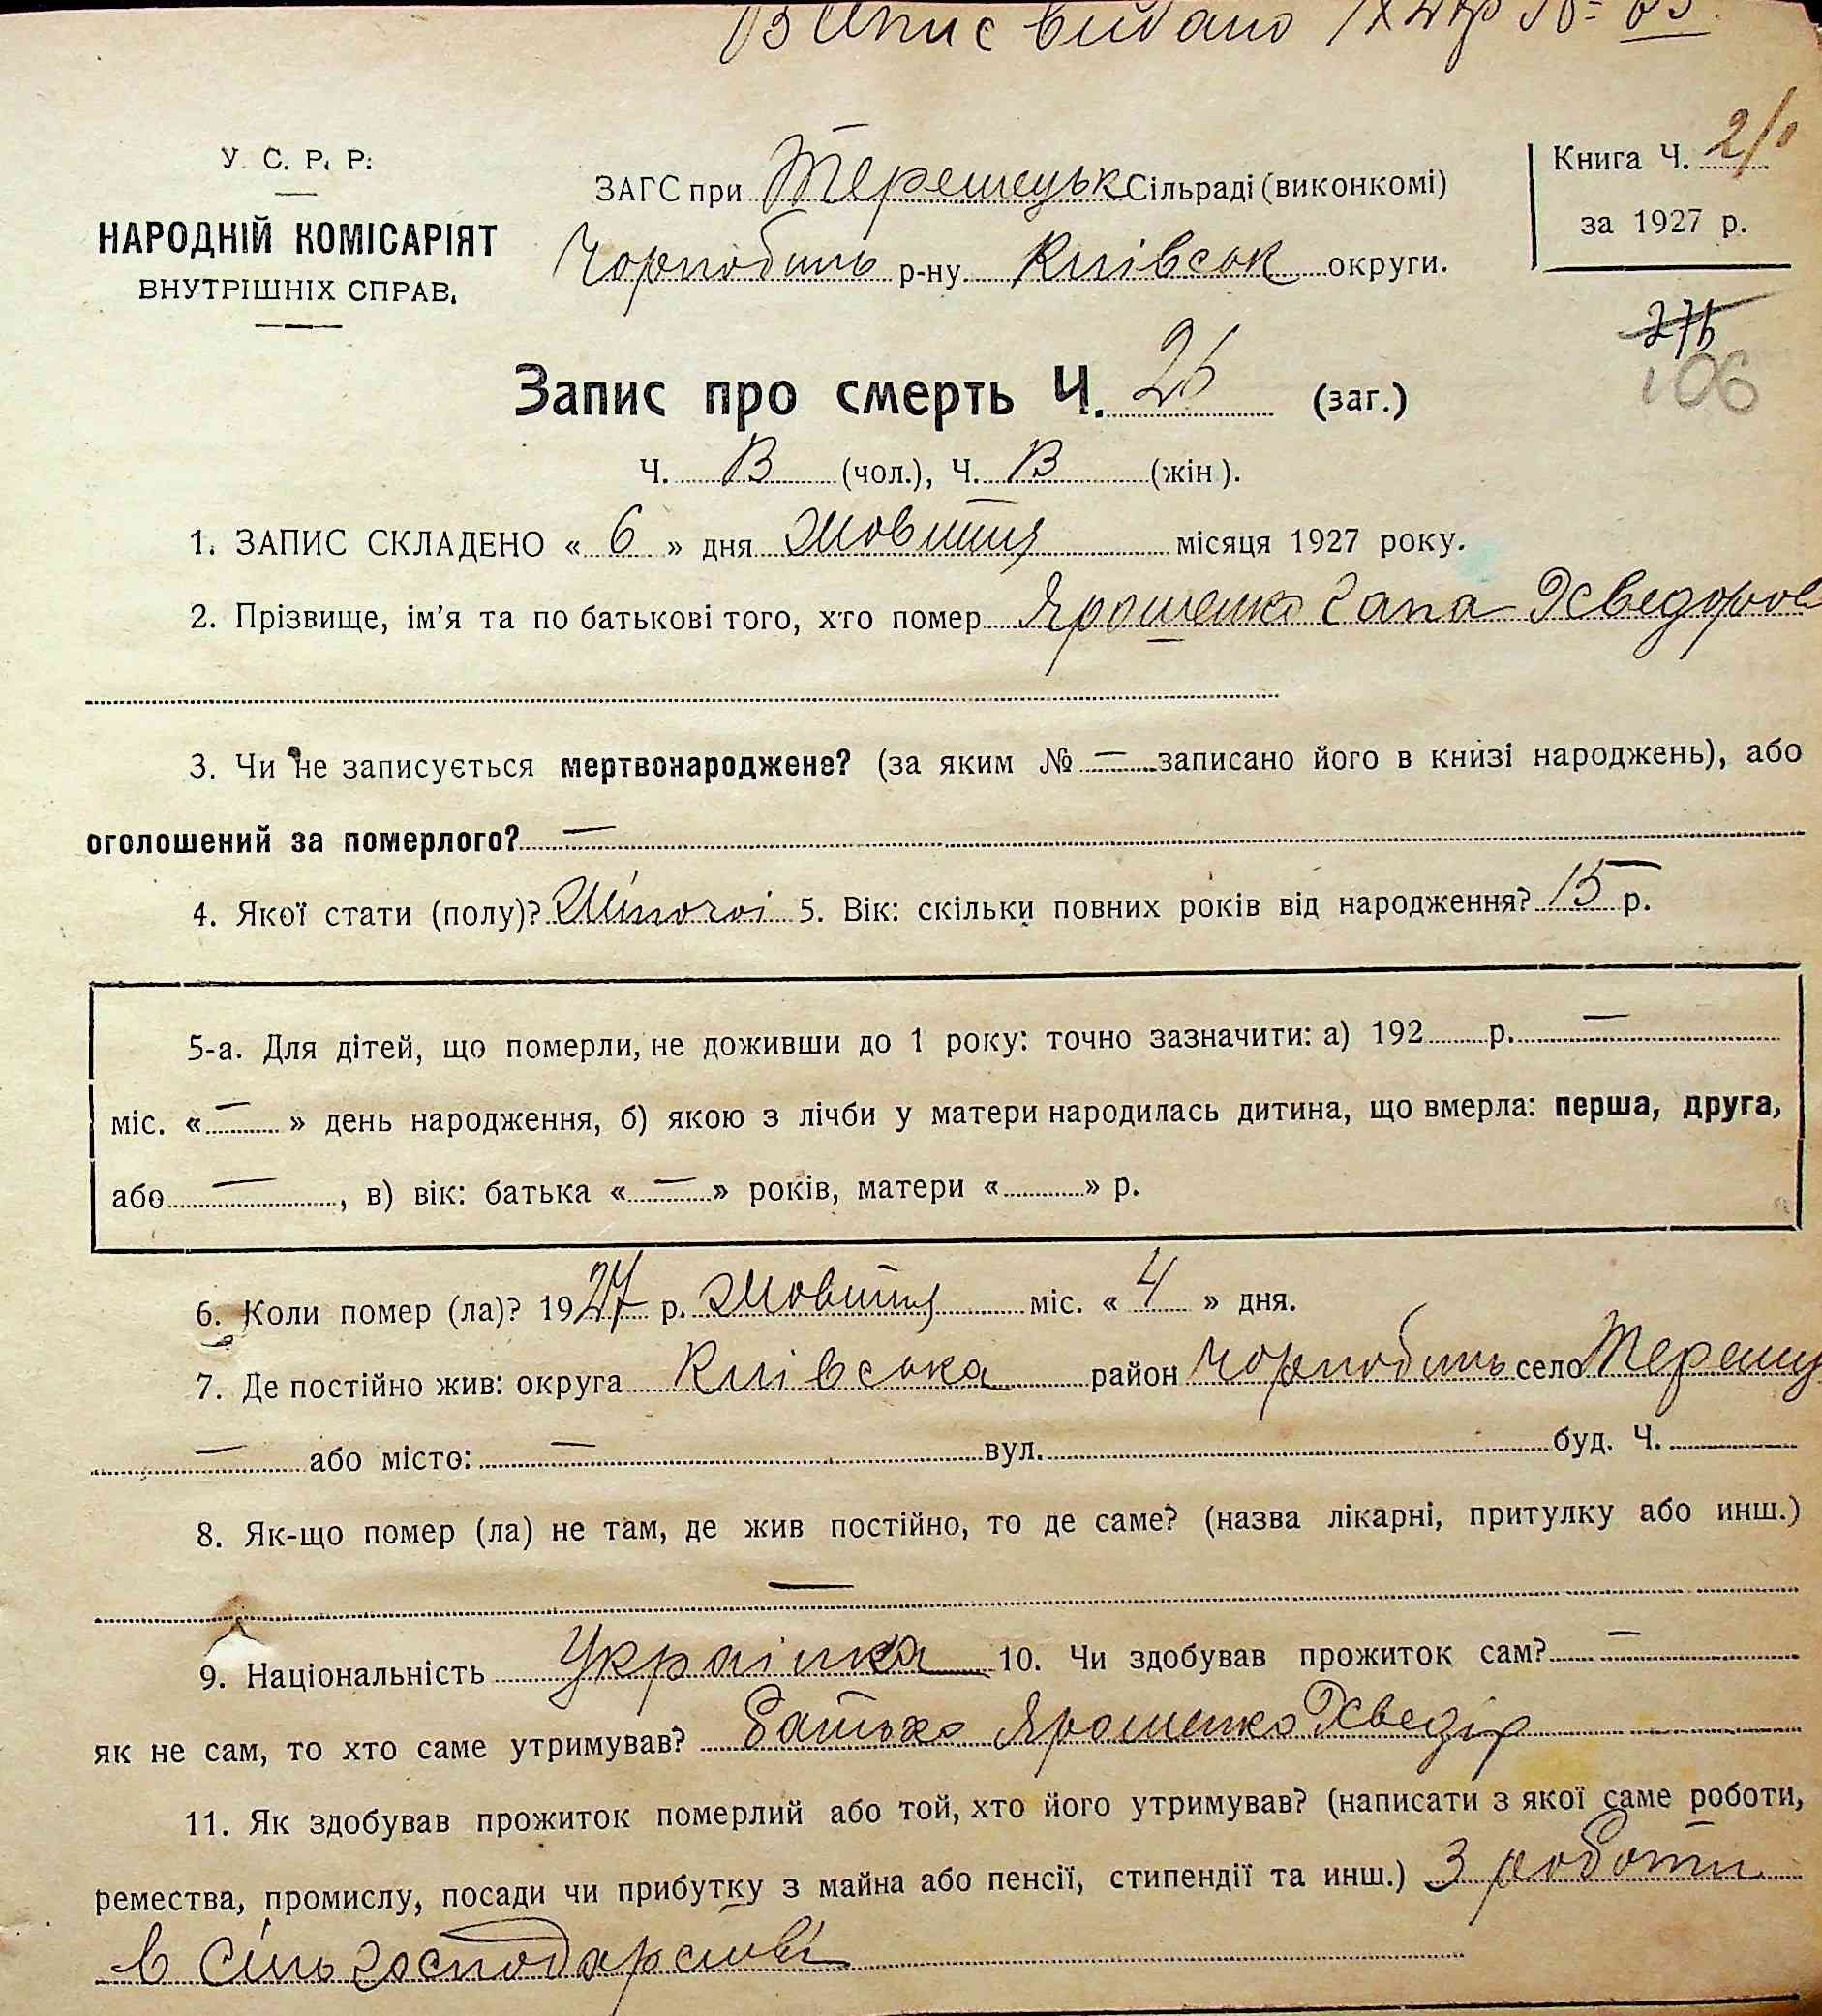 Випис видано
У. С. Р. Р.
НАРОДНІЙ КОМІСАРІЯТ
ВНУТРІШНІХ СПРАВ.
ЗАГС при Терешецьк Сільраді (виконкомі)
Чорнобиль р-ну. Київськ округи.
Книга Ч. 2/
за 1927 р.
106
Запис про смерть Ч. 26 (заг.)
Ч. В (чол.), Ч. В (жін).
1. ЗАПИС СКЛАДЕНО « 6 » дня Жовтня місяця 1927 року.
2. Прізвище, ім'я та по батькові того, хто помер Ярошенко Гапа Хведоров
3. Чи не записується мертвонароджене? (за яким № — записано його в книзі народжень), або
оголошений за померлого? —
4. Якої стати (полу)? Жіночої 5. Вік: скільки повних років від народження? 15 р.
5-а. Для дітей, що померли, не доживши до 1 року: точно зазначити: а) 192 р. —
міс. « — » день народження, б) якою з лічби у матери народилась дитина, що вмерла: перша, друга,
або — , в) вік: батька « — » років, матери « » р.
6. Коли помер (ла)? 1927 р. Жовтня міс. « 4 » дня.
7. Де постійно жив: округа Київська район Чорнобиль село Терещ
— або місто: — вул. буд. Ч.
8. Як-що помер (ла) не там, де жив постійно, то де саме? (назва лікарні, притулку або инш.)
—
9. Національність Українка 10. Чи здобував прожиток сам? —
як не сам, то хто саме утримував? Батько Ярошенко Хведір
11. Як здобував прожиток померлий або той, хто його утримував? (написати з якої саме роботи,
ремества, промислу, посади чи прибутку з майна або пенсії, стипендії та инш.) З роботи
в Сіль господарстві